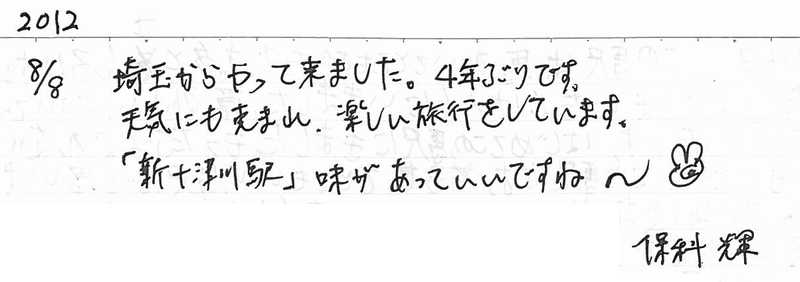 2012
8/8 埼玉からやって来ました。4年ぶりです。
天気にも恵まれ、楽しい旅行をしています。
「新十津川駅」味があっていいですね〜
保科 輝